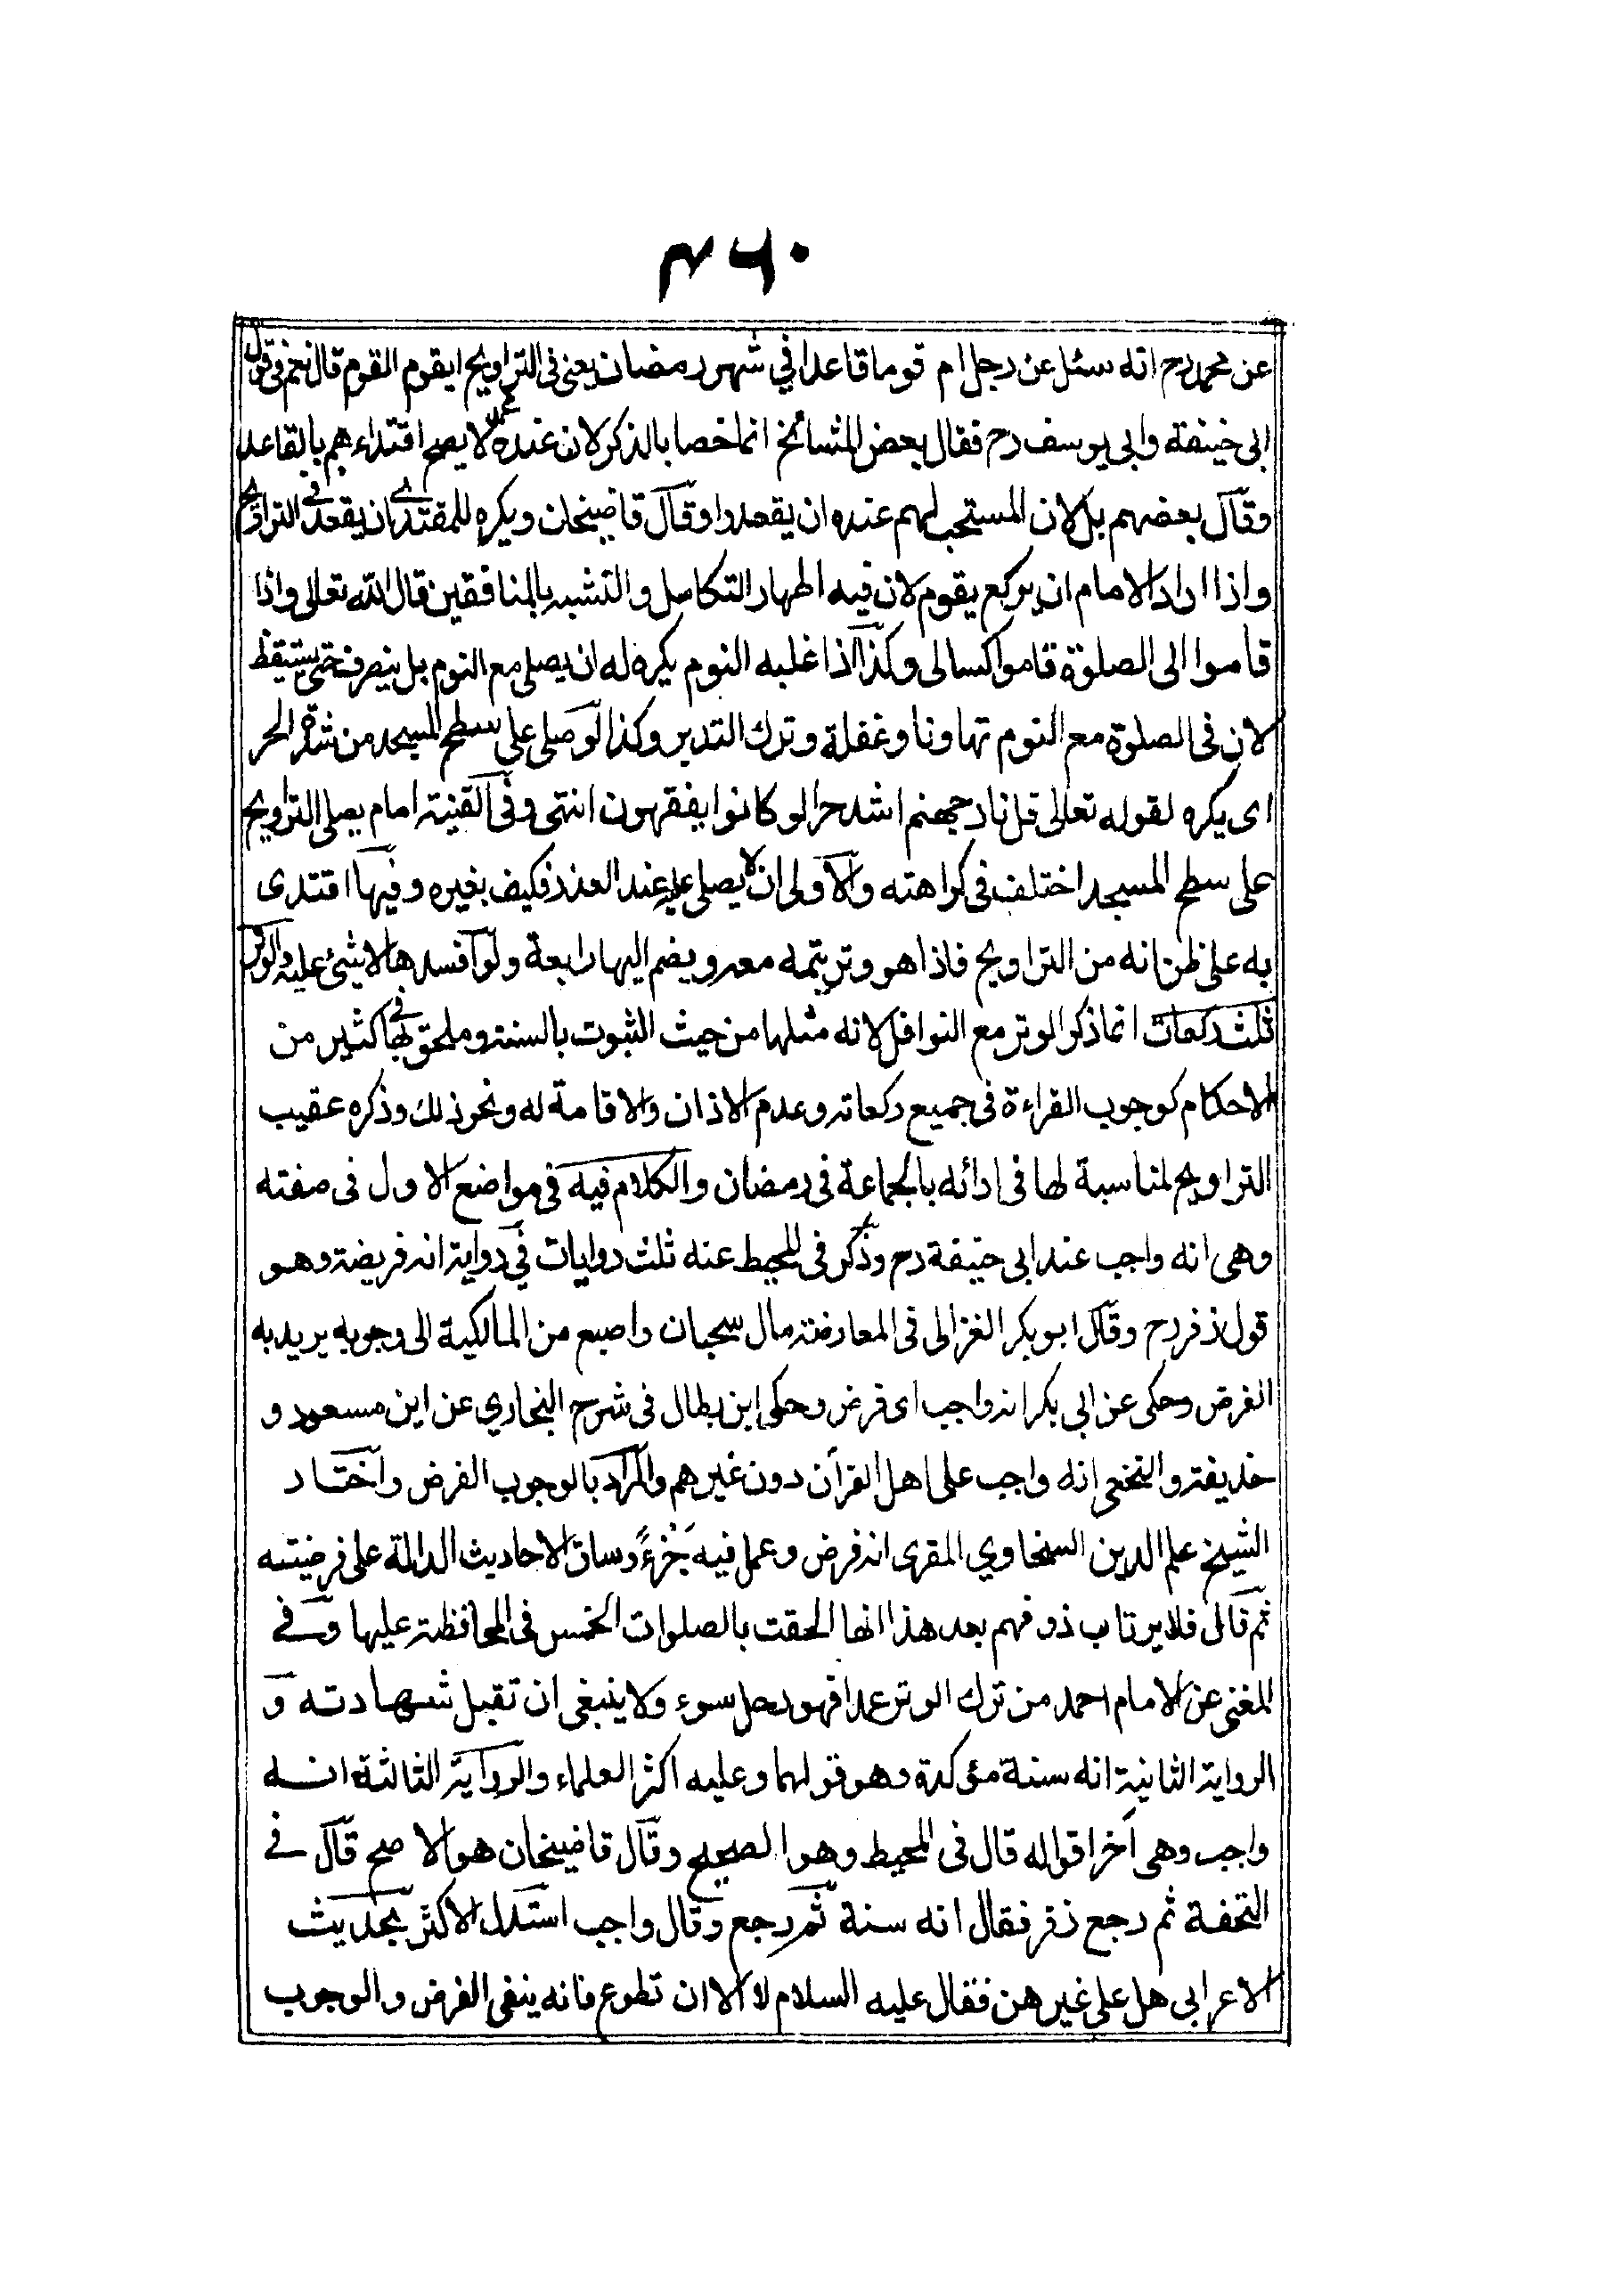 ۴۶۰
عن محمد رح انه سئل عن رجل ام قوما قاعدا في شهر رمضان يعنى فى التراويح ايقوم القوم قال نعم فى قول
ابى حنيفة وابى يوسف رح فقال بعض المشائخ انما خصا بالذكر لان عند محمد لا يصح اقتداءهم بالقاعد
وقال بعضهم بل لان المستحب لهم عنده ان يقعدوا وقال قاضيخان ويكره للمقتدى ان يقعد فى التراويح
واذا اراد الامام ان يركع يقوم لان فيه اظهار التكاسل والتشبه بالمنافقين قال الله تعالى واذا
قاموا الى الصلوة قاموا كسالى وكذا اذا غلبه النوم يكره له ان يصلى مع النوم بل ينصرف حتى يستيقظ
لان فى الصلوة مع النوم تهاونا وغفلة وترك التدبر وكذا لو صلى على سطح المسجد من شدة الحر
اى يكره لقوله تعالى قل نار جهنم اشد حرا لو كانوا يفقهون انتهى وفى القنية امام يصلى التراويح
على سطح المسجد اختلف فى كراهته والاولى ان لا يصلى عليه عند العذر فكيف بغيره وفيها اقتدى
به على ظن انه من التراويح فاذا هو وتر يتمه معه ويضم اليها رابعة ولو افسدها لا شئ عليه والوتر
ثلث ركعات انما ذكر الوتر مع النوافل لانه مثلها من حيث الثبوت بالسنة وملحق بها فى كثير من
الاحكام كوجوب القراءة فى جميع ركعاته وعدم الاذان والاقامة له ونحو ذلك وذكره عقيب
التراويح لمناسبة لها فى ادائه بالجماعة فى رمضان والكلام فيه فى مواضع الاول فى صفته
وهى انه واجب عند ابى حنيفة رح وذكر فى المحيط عنه ثلث روايات في رواية انه فريضة وهو
قول زفر رح وقال ابو بكر الغزالى فى المعارضة مال سحبان واصبع من المالكية الى وجوبه يريد به
الفرض وحكى عن ابى بكر انه واجب اى فرض وحكى ابن بطال فى شرح البخاري عن ابن مسعود و
حذيفة والنخعى انه واجب على اهل القرآن دون غيرهم والمراد بالوجوب الفرض واختار
الشيخ علم الدين السخاوي المقرى انه فرض وعمل فيه جُزءً وساق الاحاديث الدالة على فرضيته
ثم قال فلا يرتاب ذو فهم بعد هذا انها الحقت بالصلوات الخمس فى المحافظة عليها وفى
المغنى عن الامام احمد من ترك الوتر عمدا فهو رجل سوء ولا ينبغى ان تقبل شهادته و
الرواية الثانية انه سنة مؤكدة وهو قولهما وعليه اكثر العلماء والرواية الثالثة انه
واجب وهى آخر اقواله قال فى المحيط وهو الصحيح وقال قاضيخان هو الاصح قال فى
التحفة ثم رجع زفر فقال انه سنة ثم رجع وقال واجب استدل الاكثر بحديث
الاعرابى هل على غيرهن فقال عليه السلام لا الا ان تطوع فانه ينفى الفرض والوجوب